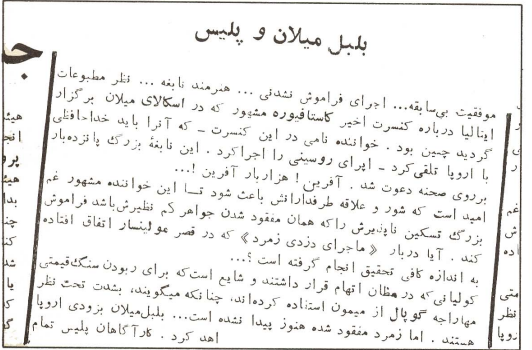 بلبل میلان و پلیس
موفقیت بی‌سابقه... اجرای فراموش نشدنی ... هنرمند نابغه ... نظر مطبوعات
ایتالیا درباره کنسرت اخیر کاستافیوره مشهور که در اسکالای میلان برگزار
گردید چنین بود . خواننده نامی در این کنسرت ــ که آنرا باید خداحافظی
با اروپا تلقی‌کرد ــ اپرای روسینی را اجراکرد . این نابغهٔ بزرگ پانزده‌بار
برروی صحنه دعوت شد . آفرین ! هزاربار آفرین !...
امید است که شور و علاقه طرفدارانش باعث شود تــا این خواننده مشهور غم
بزرگ تسکین ناپذیرش راکه همان مفقود شدن جواهر کم نظیرش‌باشد فراموش
کند . آیا دربار « ماجرای دزدی زمرد» که در قصر مولینسار اتفاق افتاده
به اندازه کافی تحقیق انجام گرفته است ؟...
کولیانی‌که در مظان اتهام قرار داشتند و شایع است‌که برای ربودن سنگ‌قیمتی
مهاراجه گوپال از میمون استفاده کرده‌اند، چنانکه میگویند، بشدت تحت نظر
هستند . اما زمرد مفقود شده هنوز پیدا نشده است... بلبل‌میلان بزودی اروپا
اهد کرد . کارآگاهان پلیس تمام